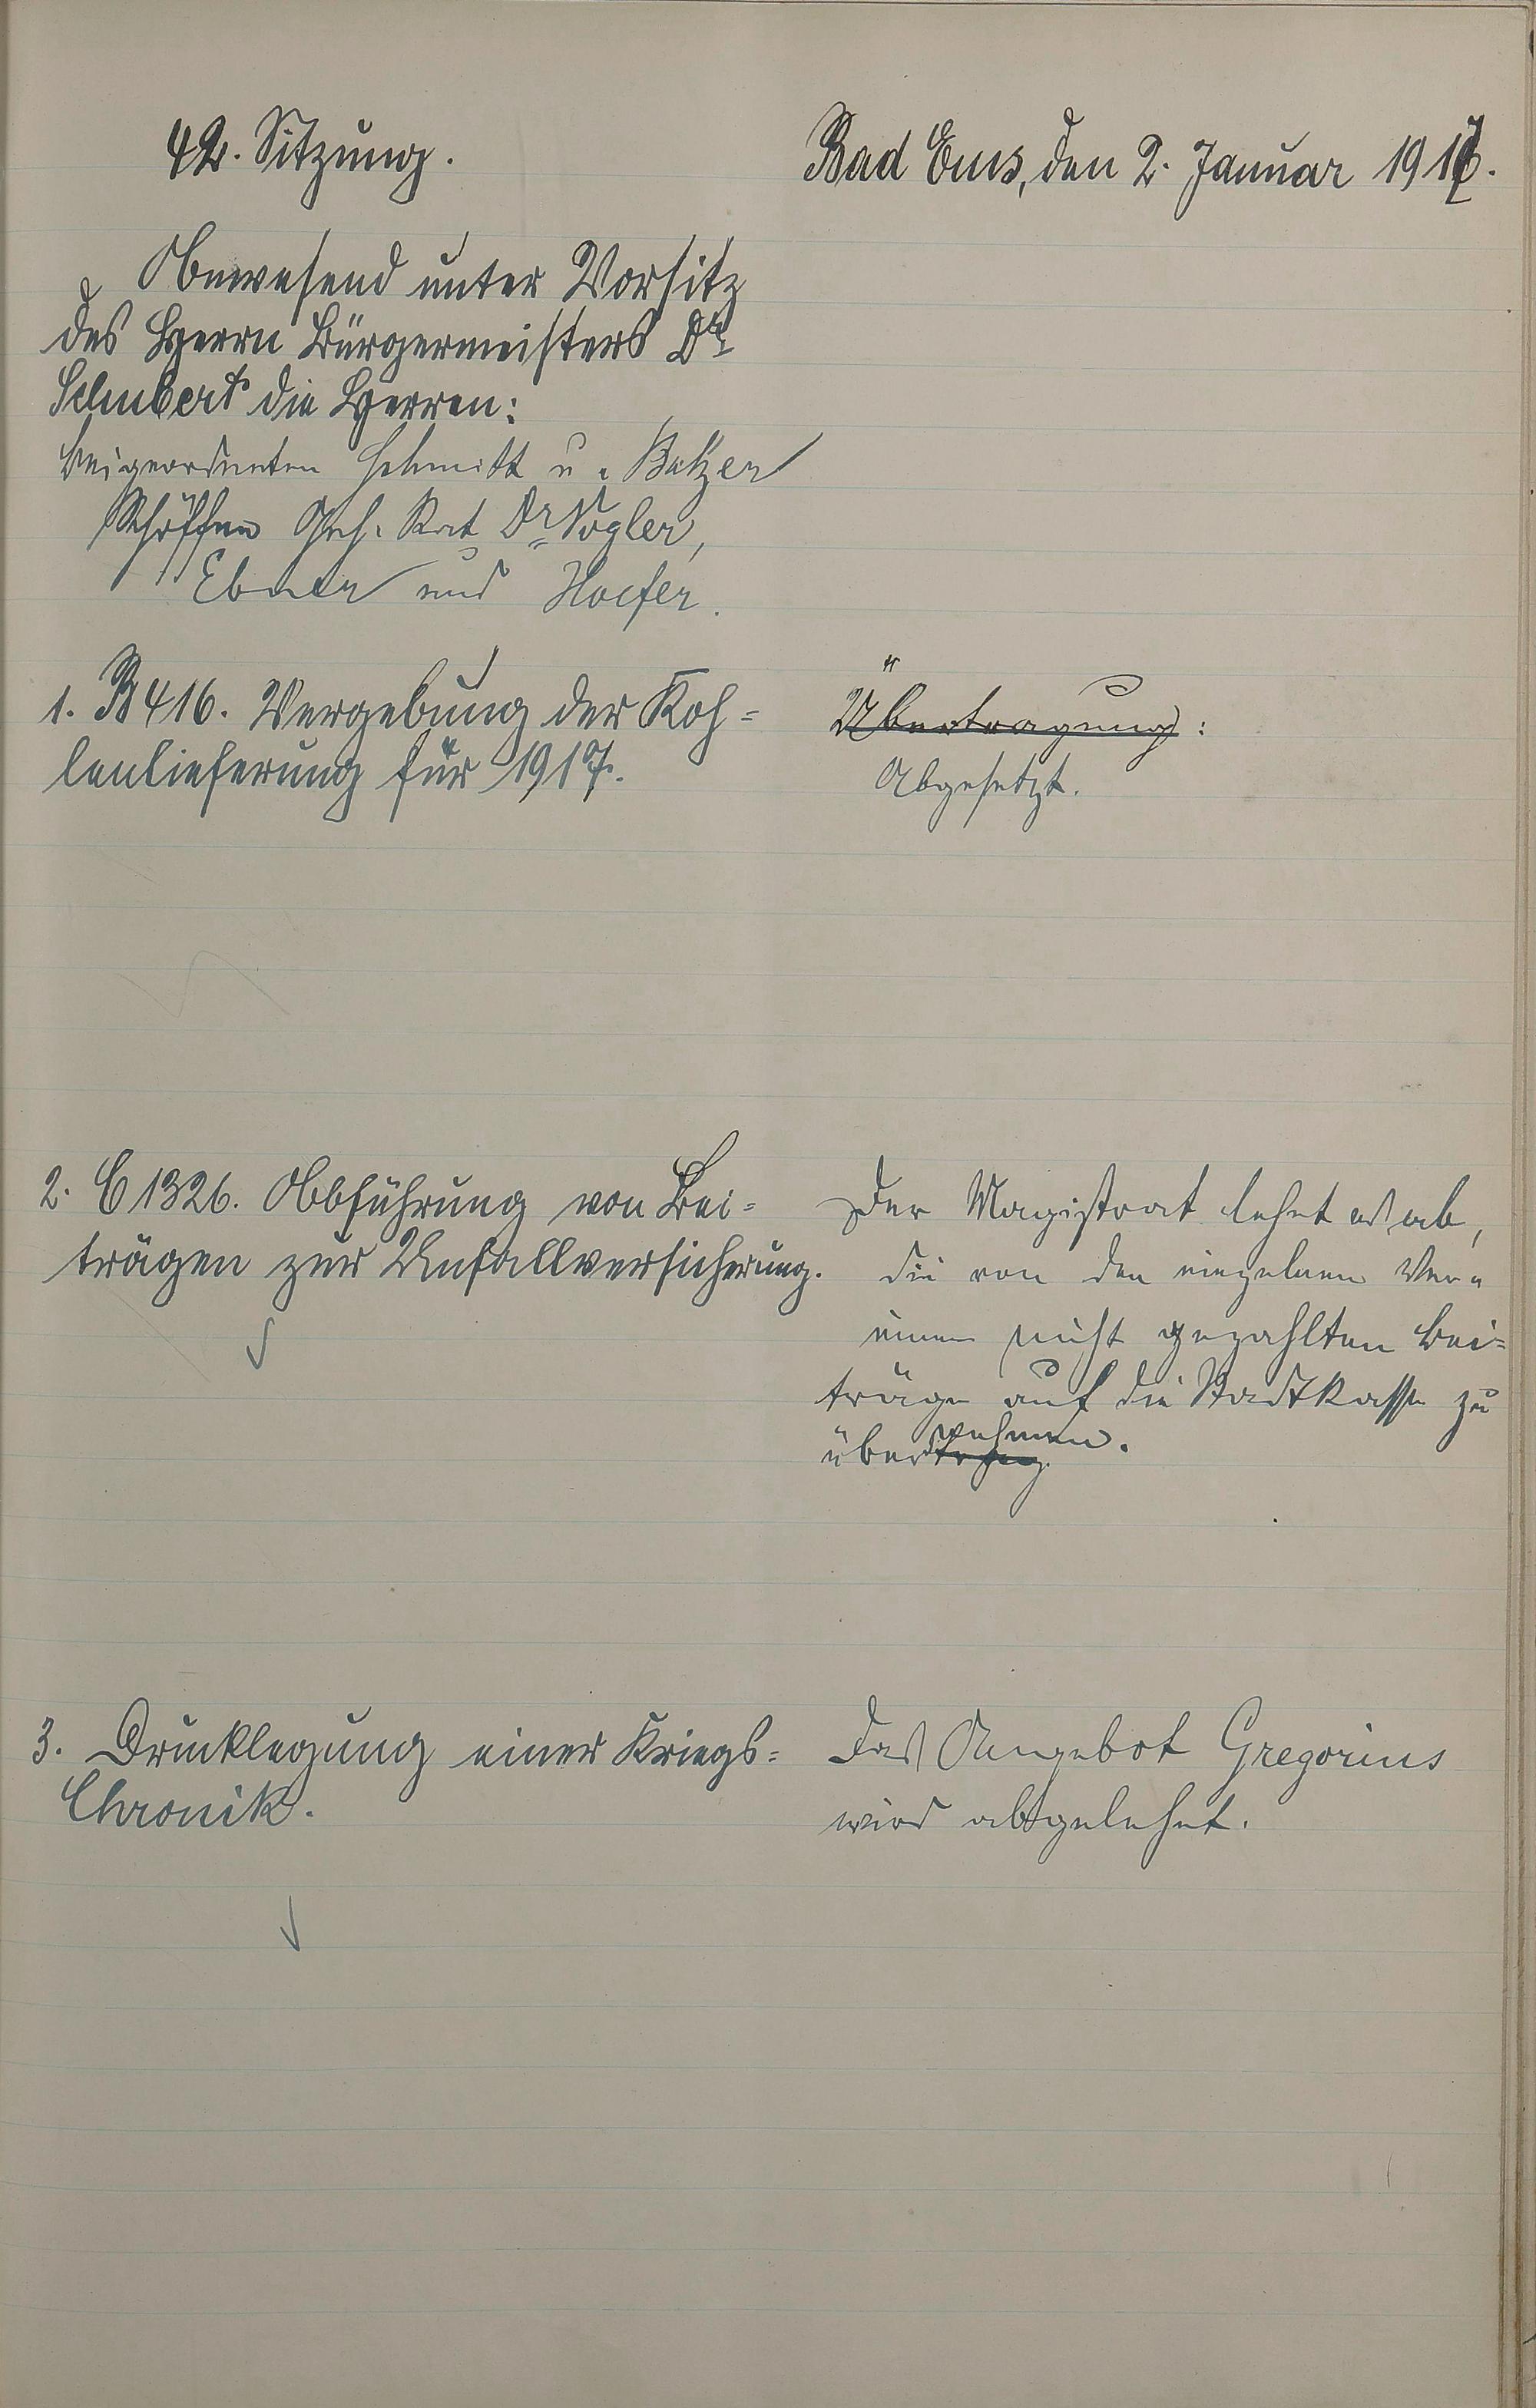 42. Sitzung.
Bad Ems, den 2. Januar 1917.
Anwesend unter Vorsitz
des Herrn Bürgermeisters Dr.
Schubert die Herren:
Beigeordneten Schmitt u. Balzer
Schöffen Geh. Rat Dr. Vogler,
Ebner und Hoefer.
1. B 416. Vergebung der Koh-
lenlieferung für 1917.
Übertragung:
Abgesetzt.
2. C 1326. Abführung von Bei-
trägen zur Unfallversicherung.
Der Magistrat lehnt es ab,
die von den einzelnen Ver-
einen nicht gezahlten Bei-
träge auf die Stadtkasse zu
übernehmen.
3. Drucklegung einer Kriegs-
Chronik.
Das Angebot Gregorius
wird abgelehnt.